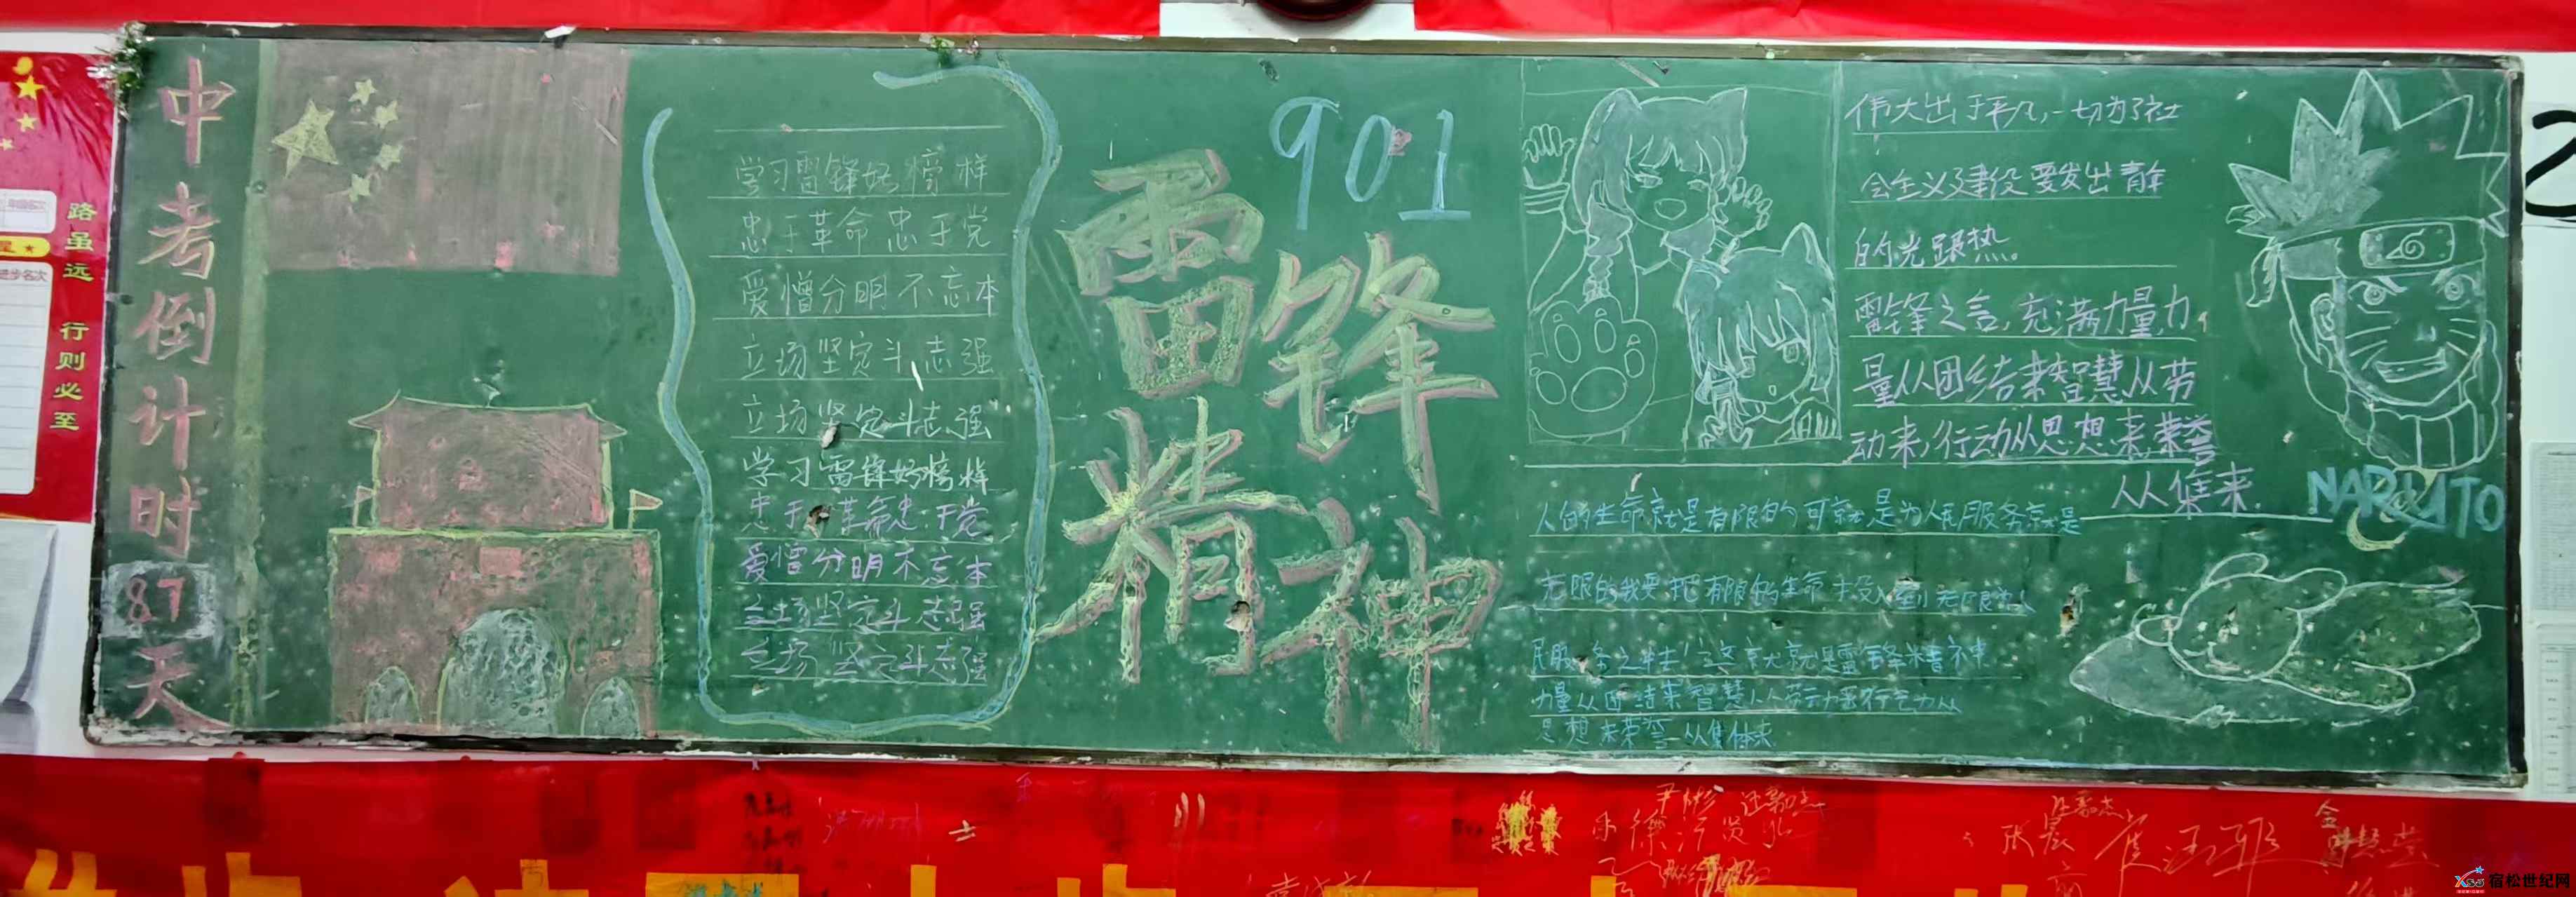 中考倒计时87天
学习雷锋好榜样
忠于革命忠于党
爱憎分明不忘本
立场坚定斗志强
立场坚定斗志强
学习雷锋好榜样
忠于革命忠于党
爱憎分明不忘本
立场坚定斗志强
立场坚定斗志强
901
雷锋
精神
伟大出于平凡,一切为了社
会主义建设要发出青年
的光跟热。
雷锋之言,充满力量,力
量从团结来智慧从劳
动来,行动从思想来,荣誉
从集来.
NARUTO
人的生命就是有限的可就是为人民服务就是
无限的我要把有限的生命投入到无限为人
民服务之中去!这就是雷锋精神
力量从团结来智慧从劳动来行动从
思想来荣誉从集体来
路虽远 行则必至
进步名次
2
宿松世纪网